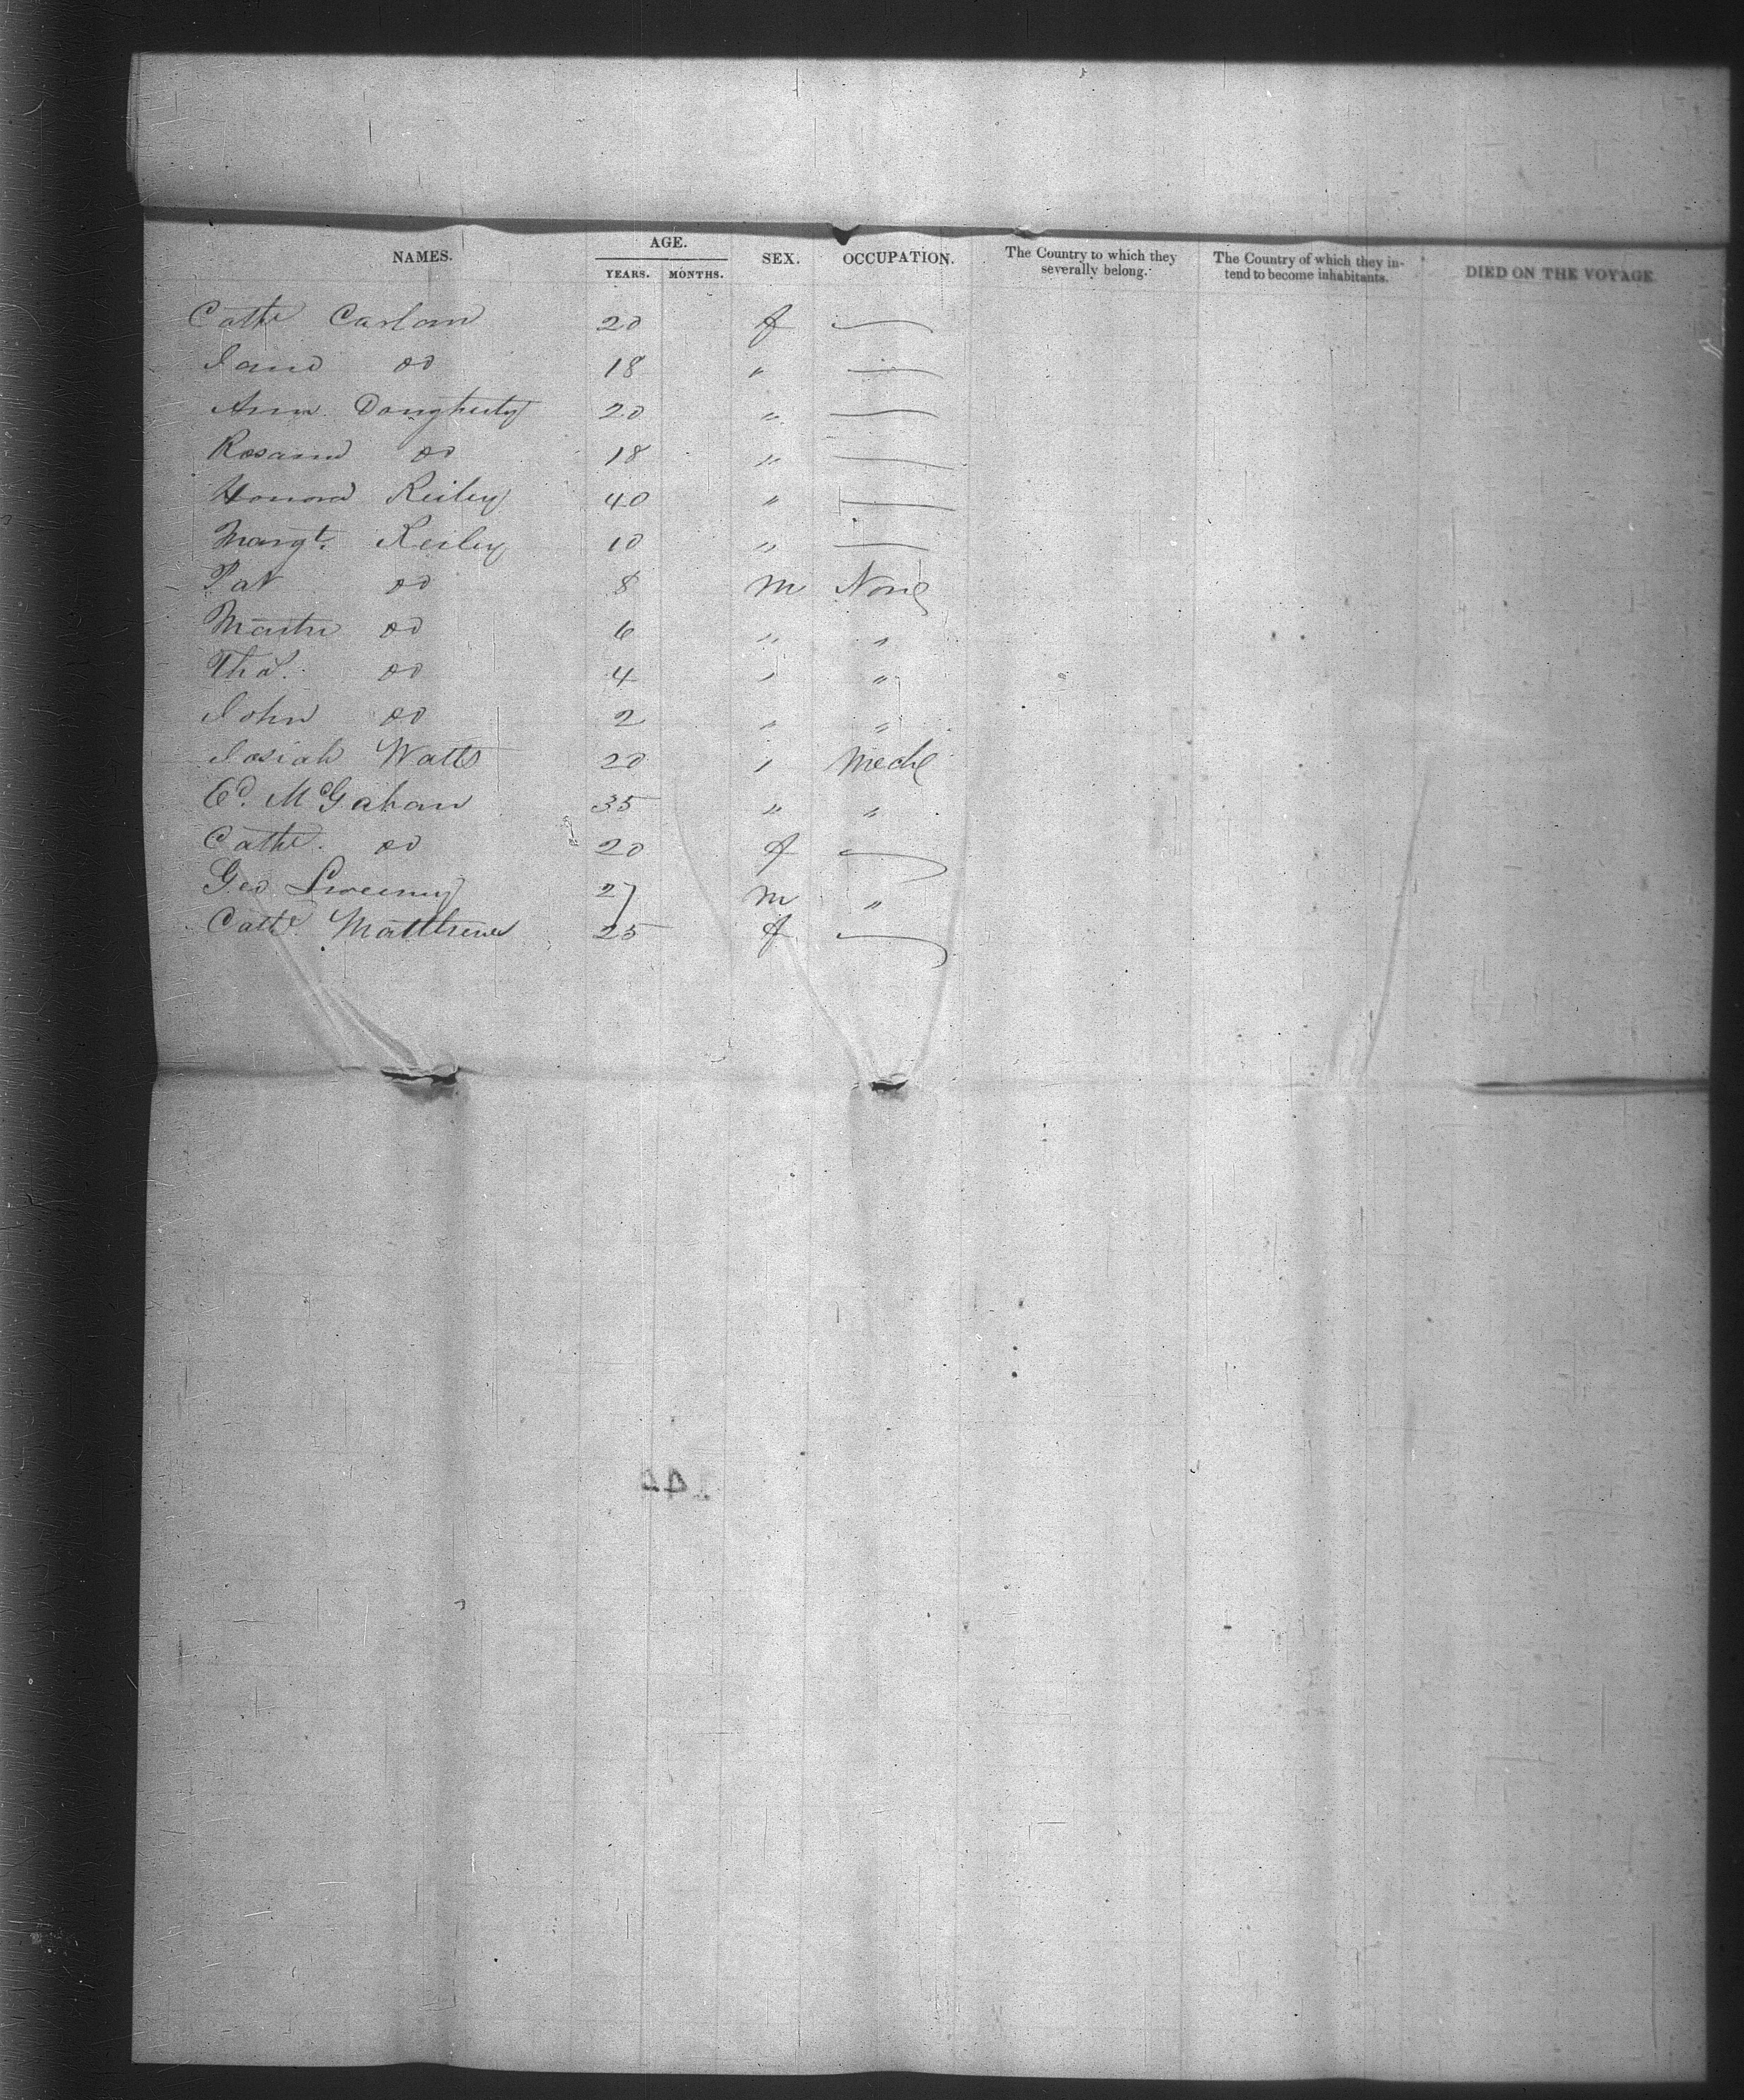 NAMES. AGE. SEX. OCCUPATION. The Country to which they severally belong. The Country of which they intend to become inhabitants. DIED ON THE VOYAGE.
YEARS. MONTHS.
Cathe Carlan 20 f —
Jane do 18 " —
Ann Dougherty 20 " —
Rosanna do 18 " —
Honora Reiley 40 " —
Margt. Reiley 10 " —
Pat do 8 M None
Martin do 6 " "
Thos. do 4 " "
John do 2 " "
Josiah Watts 20 " Mechc
Ed. McGahan 35 " "
Cathe. do 20 f —
Geo Sweeney 27 M "
Cathe. Matthews 25 f —